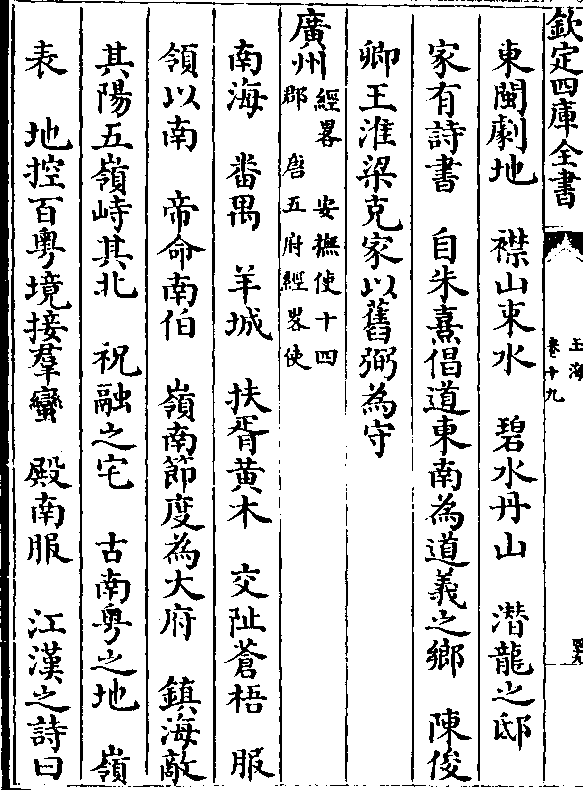 欽定四庫全書
玉海
卷十九
東閩劇地　襟山束水　碧水丹山　潛龍之邸
家有詩書　自朱熹倡道東南為道義之鄉　陳俊
卿王淮梁克家以舊弼為守
廣州經畧　安撫使十四郡　唐五府經畧使
南海　番禺　羊城　扶胥黄木　交阯蒼梧　服
領以南　帝命南伯　嶺南節度為大府　鎮海敵
其陽五嶺峙其北　祝融之宅　古南粤之地　嶺
表　地控百粤境接羣蠻　殿南服　江漢之詩曰